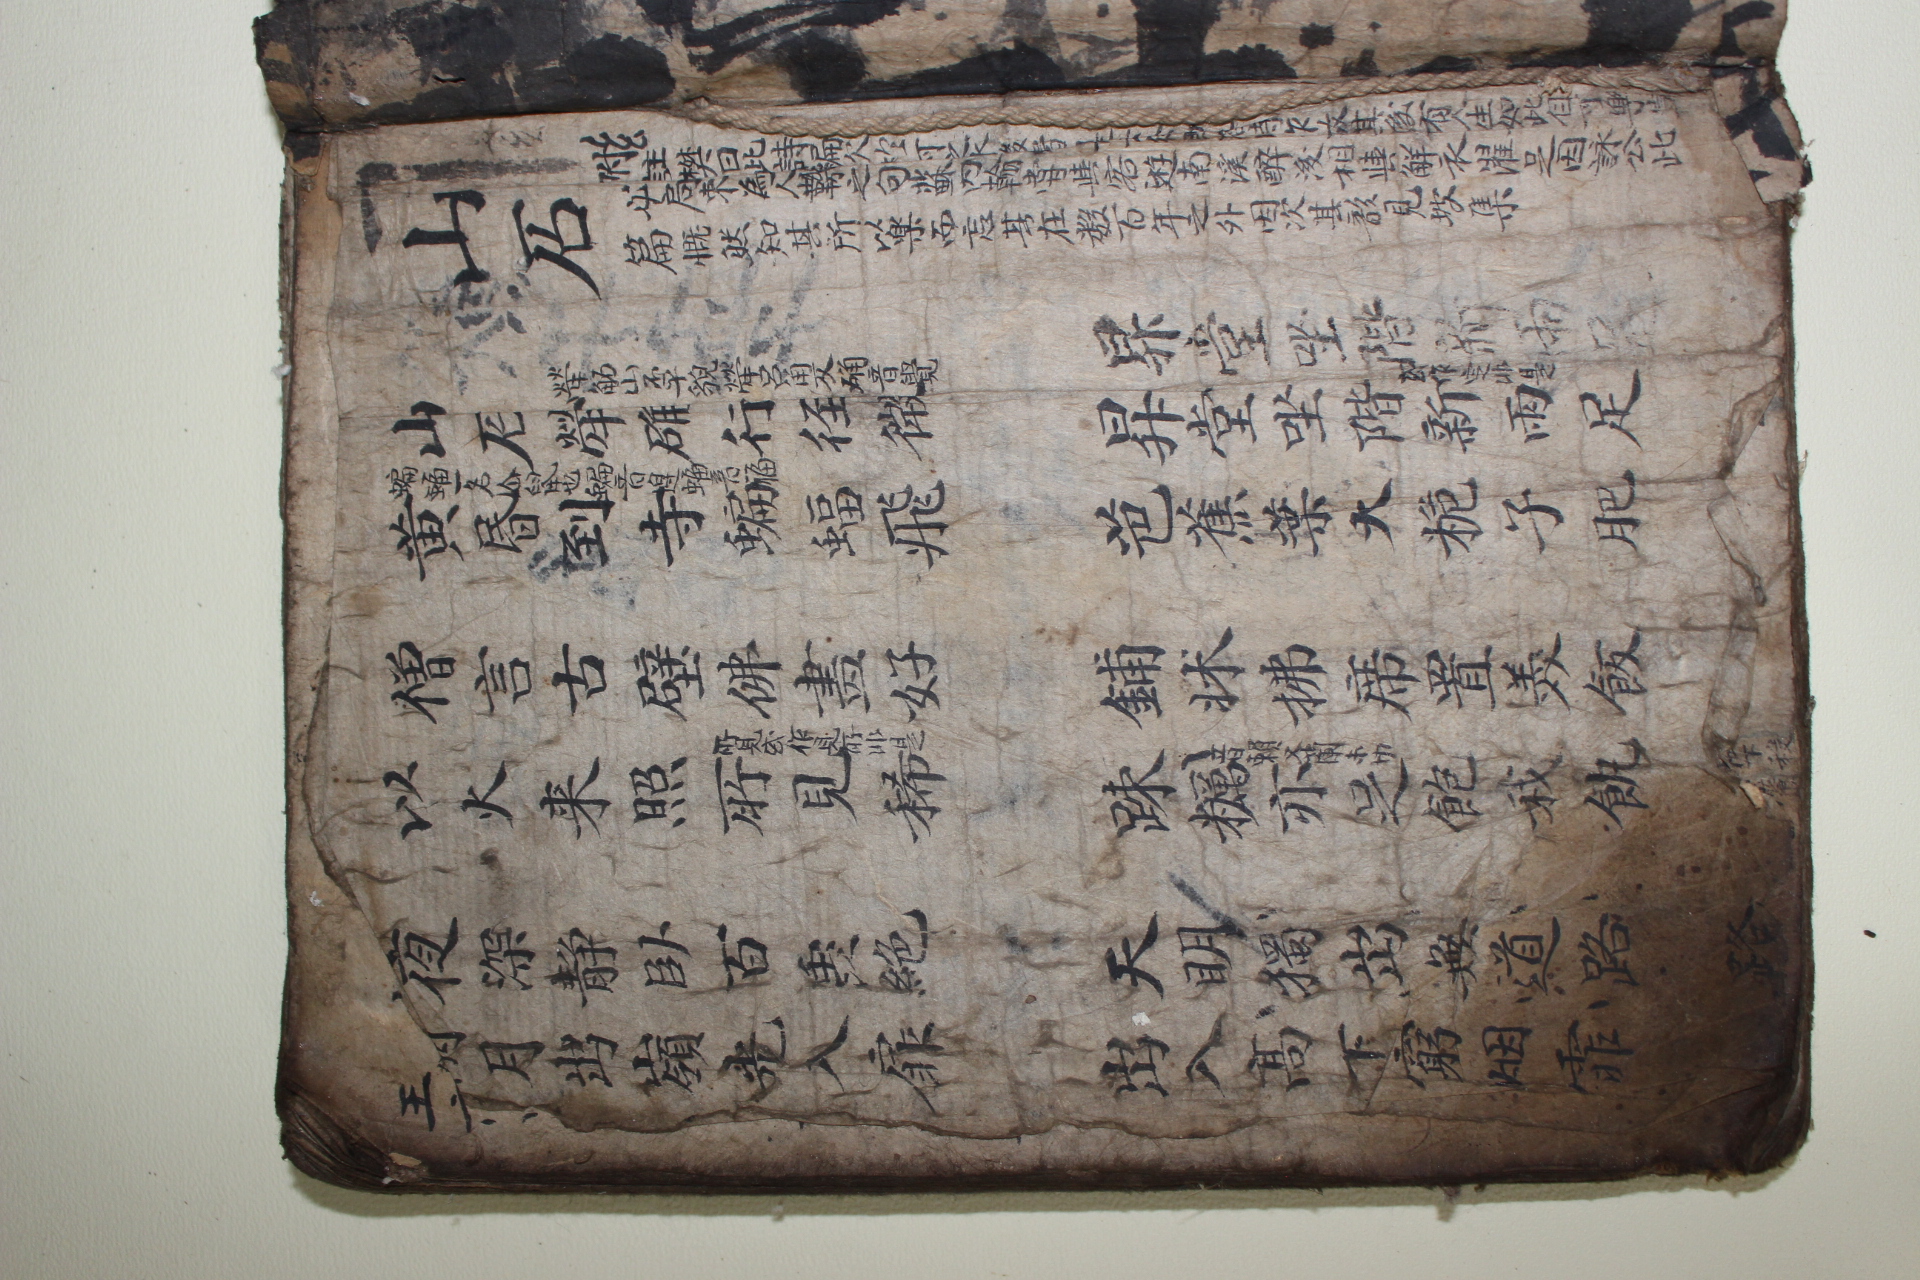 山石
附註樊曰此詩
必局束為人鞿之句蘇內翰嘗與客遊南溪醉後相與解衣濯足因詠公此
篇慨然知其所以樂而忘其在数百年之外因次其韻見坡集
昇堂坐階新雨足
山石犖确行徑微 昇堂坐階新雨足
犖觕山不平貌犖宮用又确音覺
或作定非是
黃昏到寺蝙蝠飛 芭蕉葉大梔子肥
蝙蝠一名仙鼠也蝙音邊蝠音福
僧言古壁佛畫好 鋪床拂席置羹飯
以火来照所見稀 踈糲亦足飽我飢
所見或作見所非是
音賴又闌末切
夜深静卧百虫絶 天明獨出無道路
明月出嶺光入扉 出入高下窮烟霏
王
路